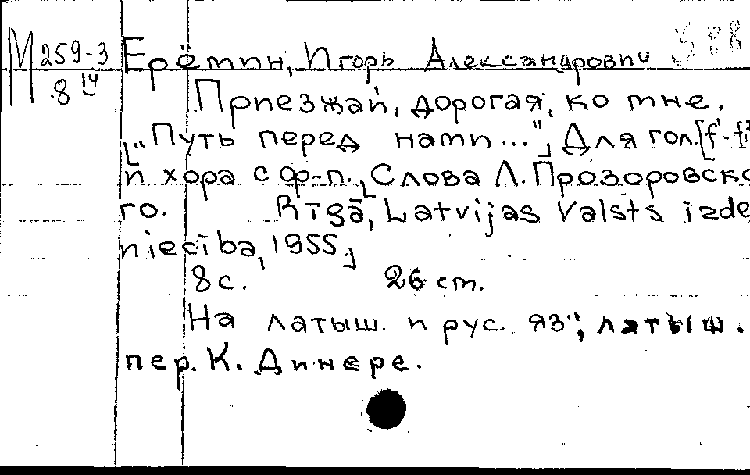 М 259-3 Ерёмин, Игорь Александрович
8 14 Приезжай, дорогая, ко мне.
[„Путь перед нами..."] Для гол.[f'-f²
и хора с ф-п. [Слова Л. Прозоровско
го. Rīgā, Latvijas Valsts izde
niecība, 1955]
8 с. 26 cm.
На латыш. и рус. яз.; латыш.
пер. К. Динере.